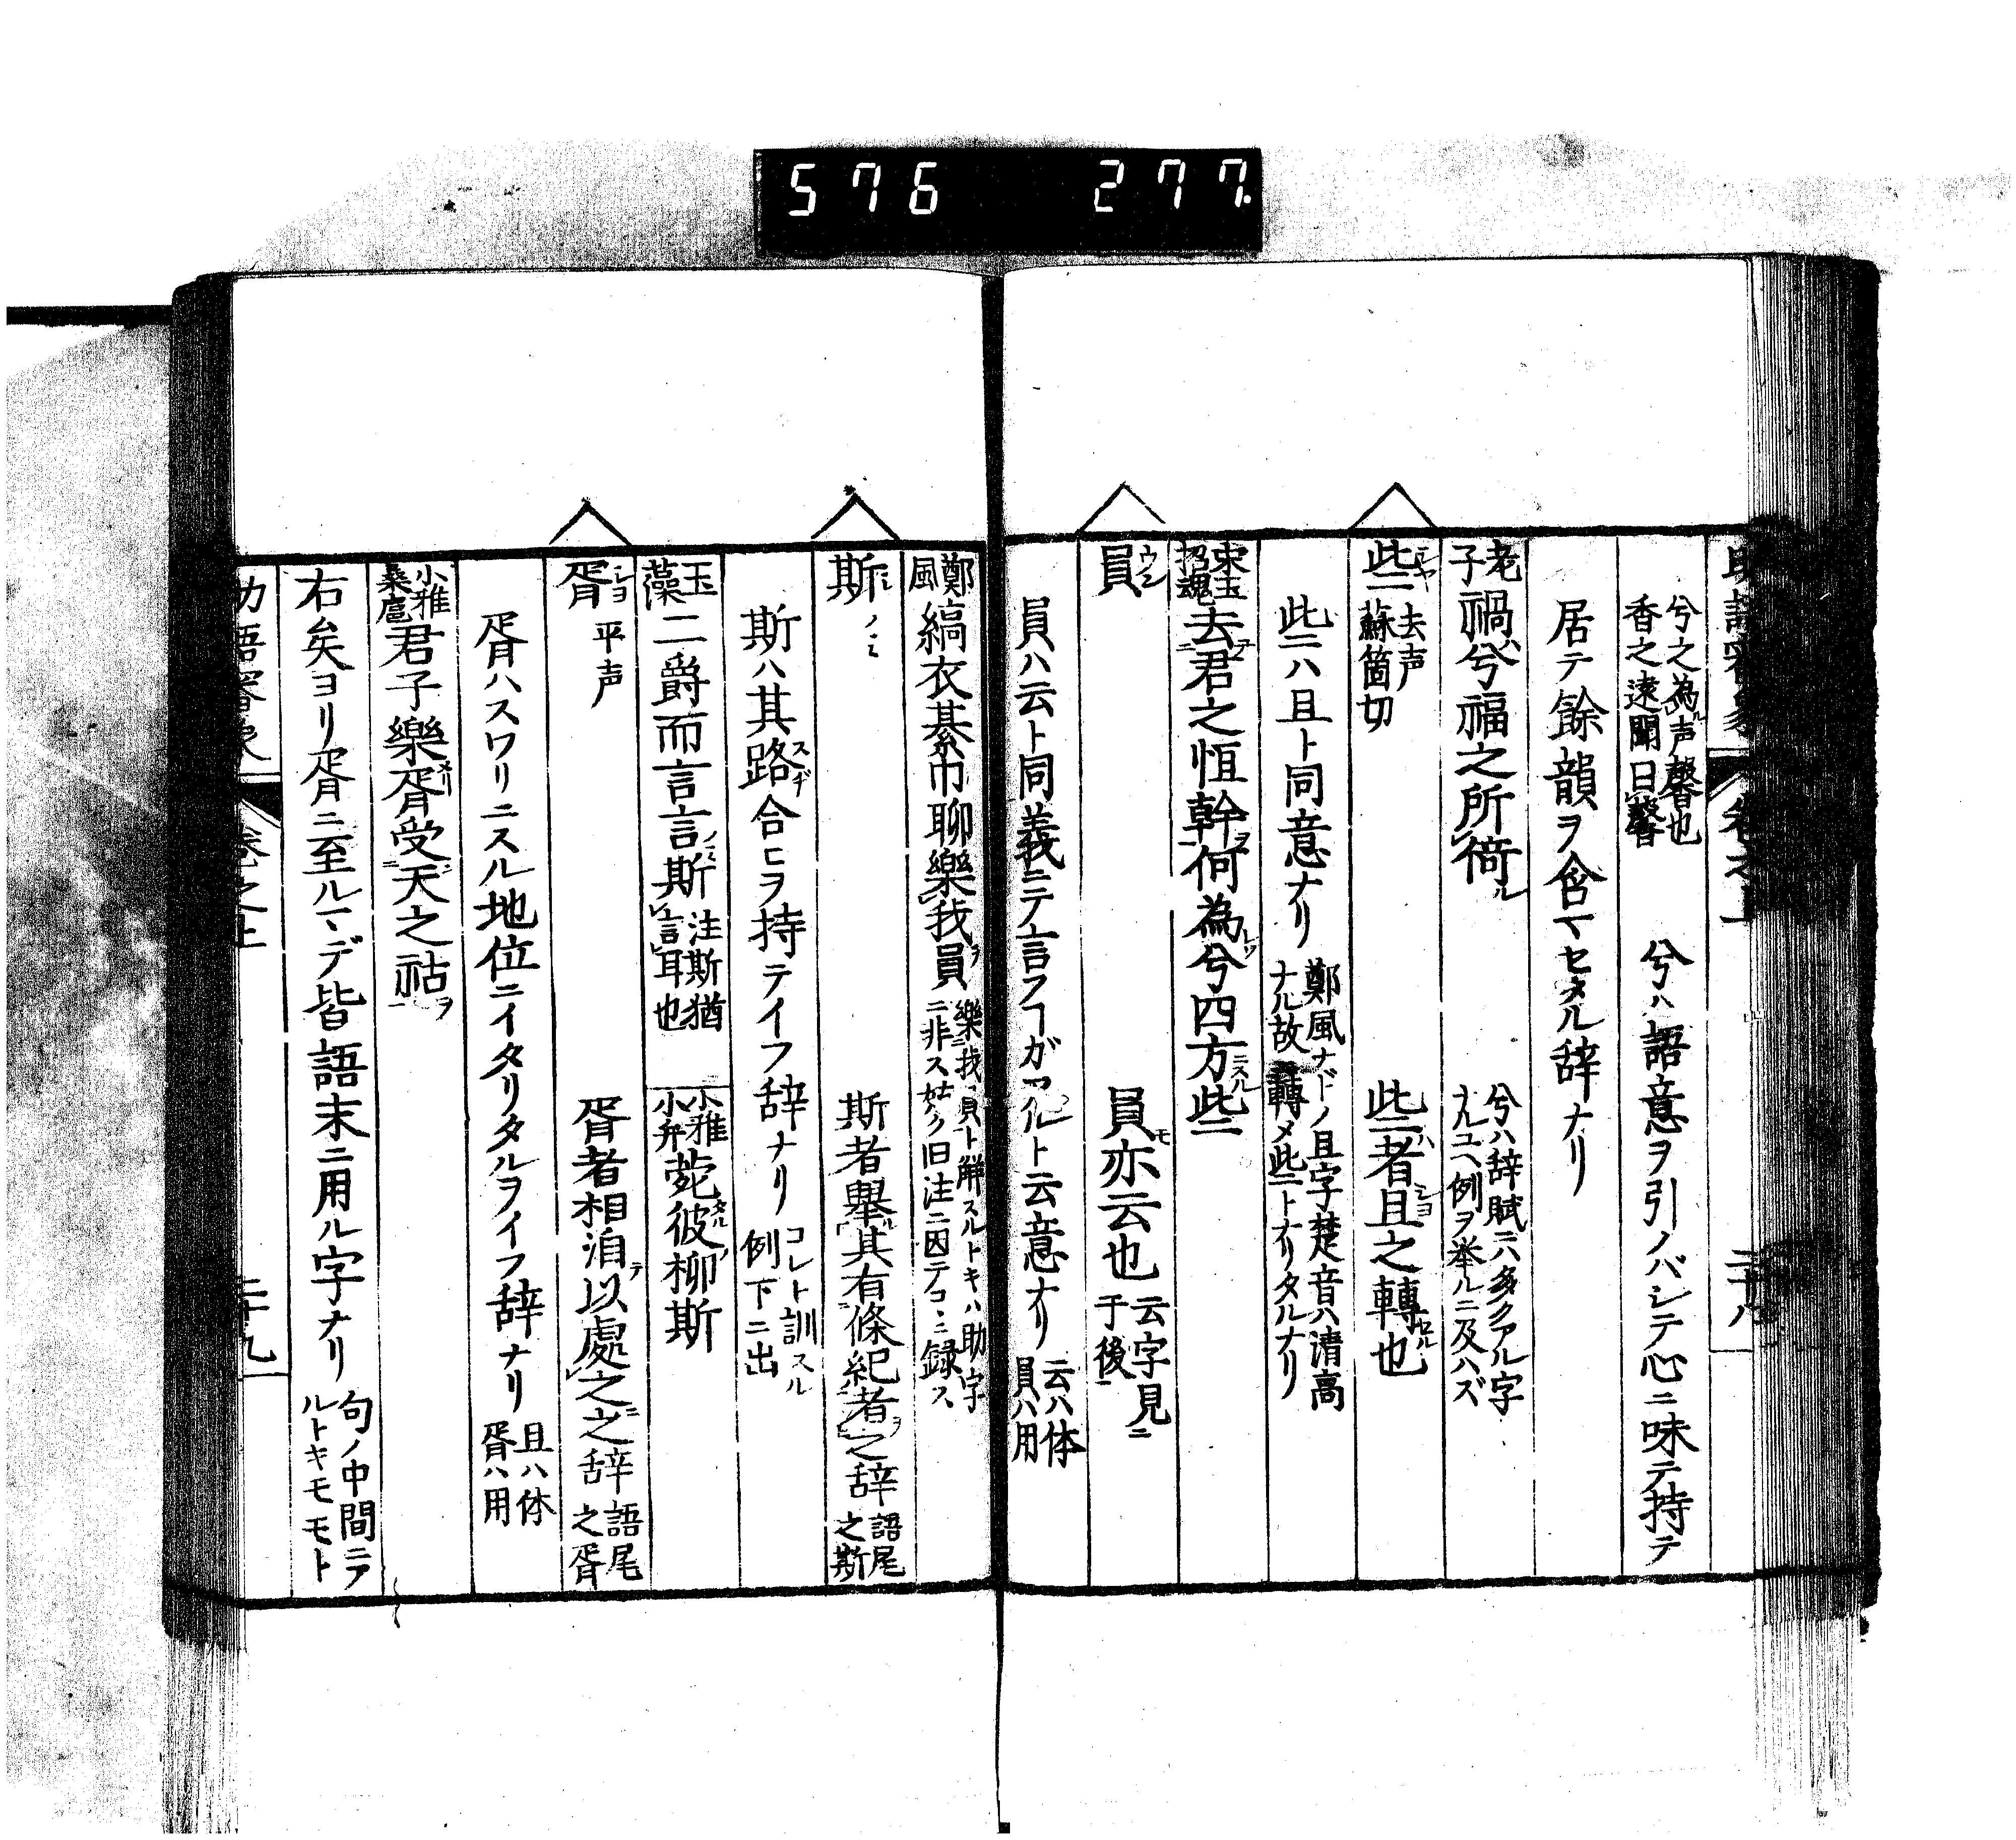 576 277.
助語審象 卷之上 二十八
兮之為声馨也
香之遠聞曰馨
兮ハ語意ヲ引ノバシテ心ニ味テ持テ
居テ餘韻ヲ含マセタル辞ナリ
老子 禍兮福之所倚ル
兮ハ辞賦ニハ多クアル字
ナルユヘ例ヲ挙ルニ及ハズ
些 去声
蘇箇切
些者且之轉也
些ハ且ト同意ナリ
鄭風ナドノ且字楚音ハ清高
ナル故轉メ些トナリタルナリ
宋玉招魂 去君之恒幹何為兮四方些
員 ウン
員亦云也
云字見
于後
員ハ云ト同義ニテ言フヿガアルト云意ナリ
云ハ体
員ハ用
鄭風 縞衣綦巾聊樂我員
樂我員ト解スルトキハ助字
ニ非ス姑ク旧注ニ因テコヽニ録ス
斯 ノミ
斯者舉其有條紀者之辞
語尾
之斯
斯ハ其路合ヒヲ持テイフ辞ナリ
コレト訓スル
例下ニ出
玉藻 二爵而言言斯
注斯猶
言耳也
小雅小弁 菀彼柳斯
胥 平声
胥者相洎以處之之辞
語尾
之胥
胥ハスワリニスル地位ニイタリタルヲイフ辞ナリ
且ハ体
胥ハ用
小雅桑扈 君子樂胥受天之祜
右矣ヨリ胥ニ至ルマデ皆語末ニ用ル字ナリ
句ノ中間ニア
ルトキモモト
助語審象 卷之上 二十九